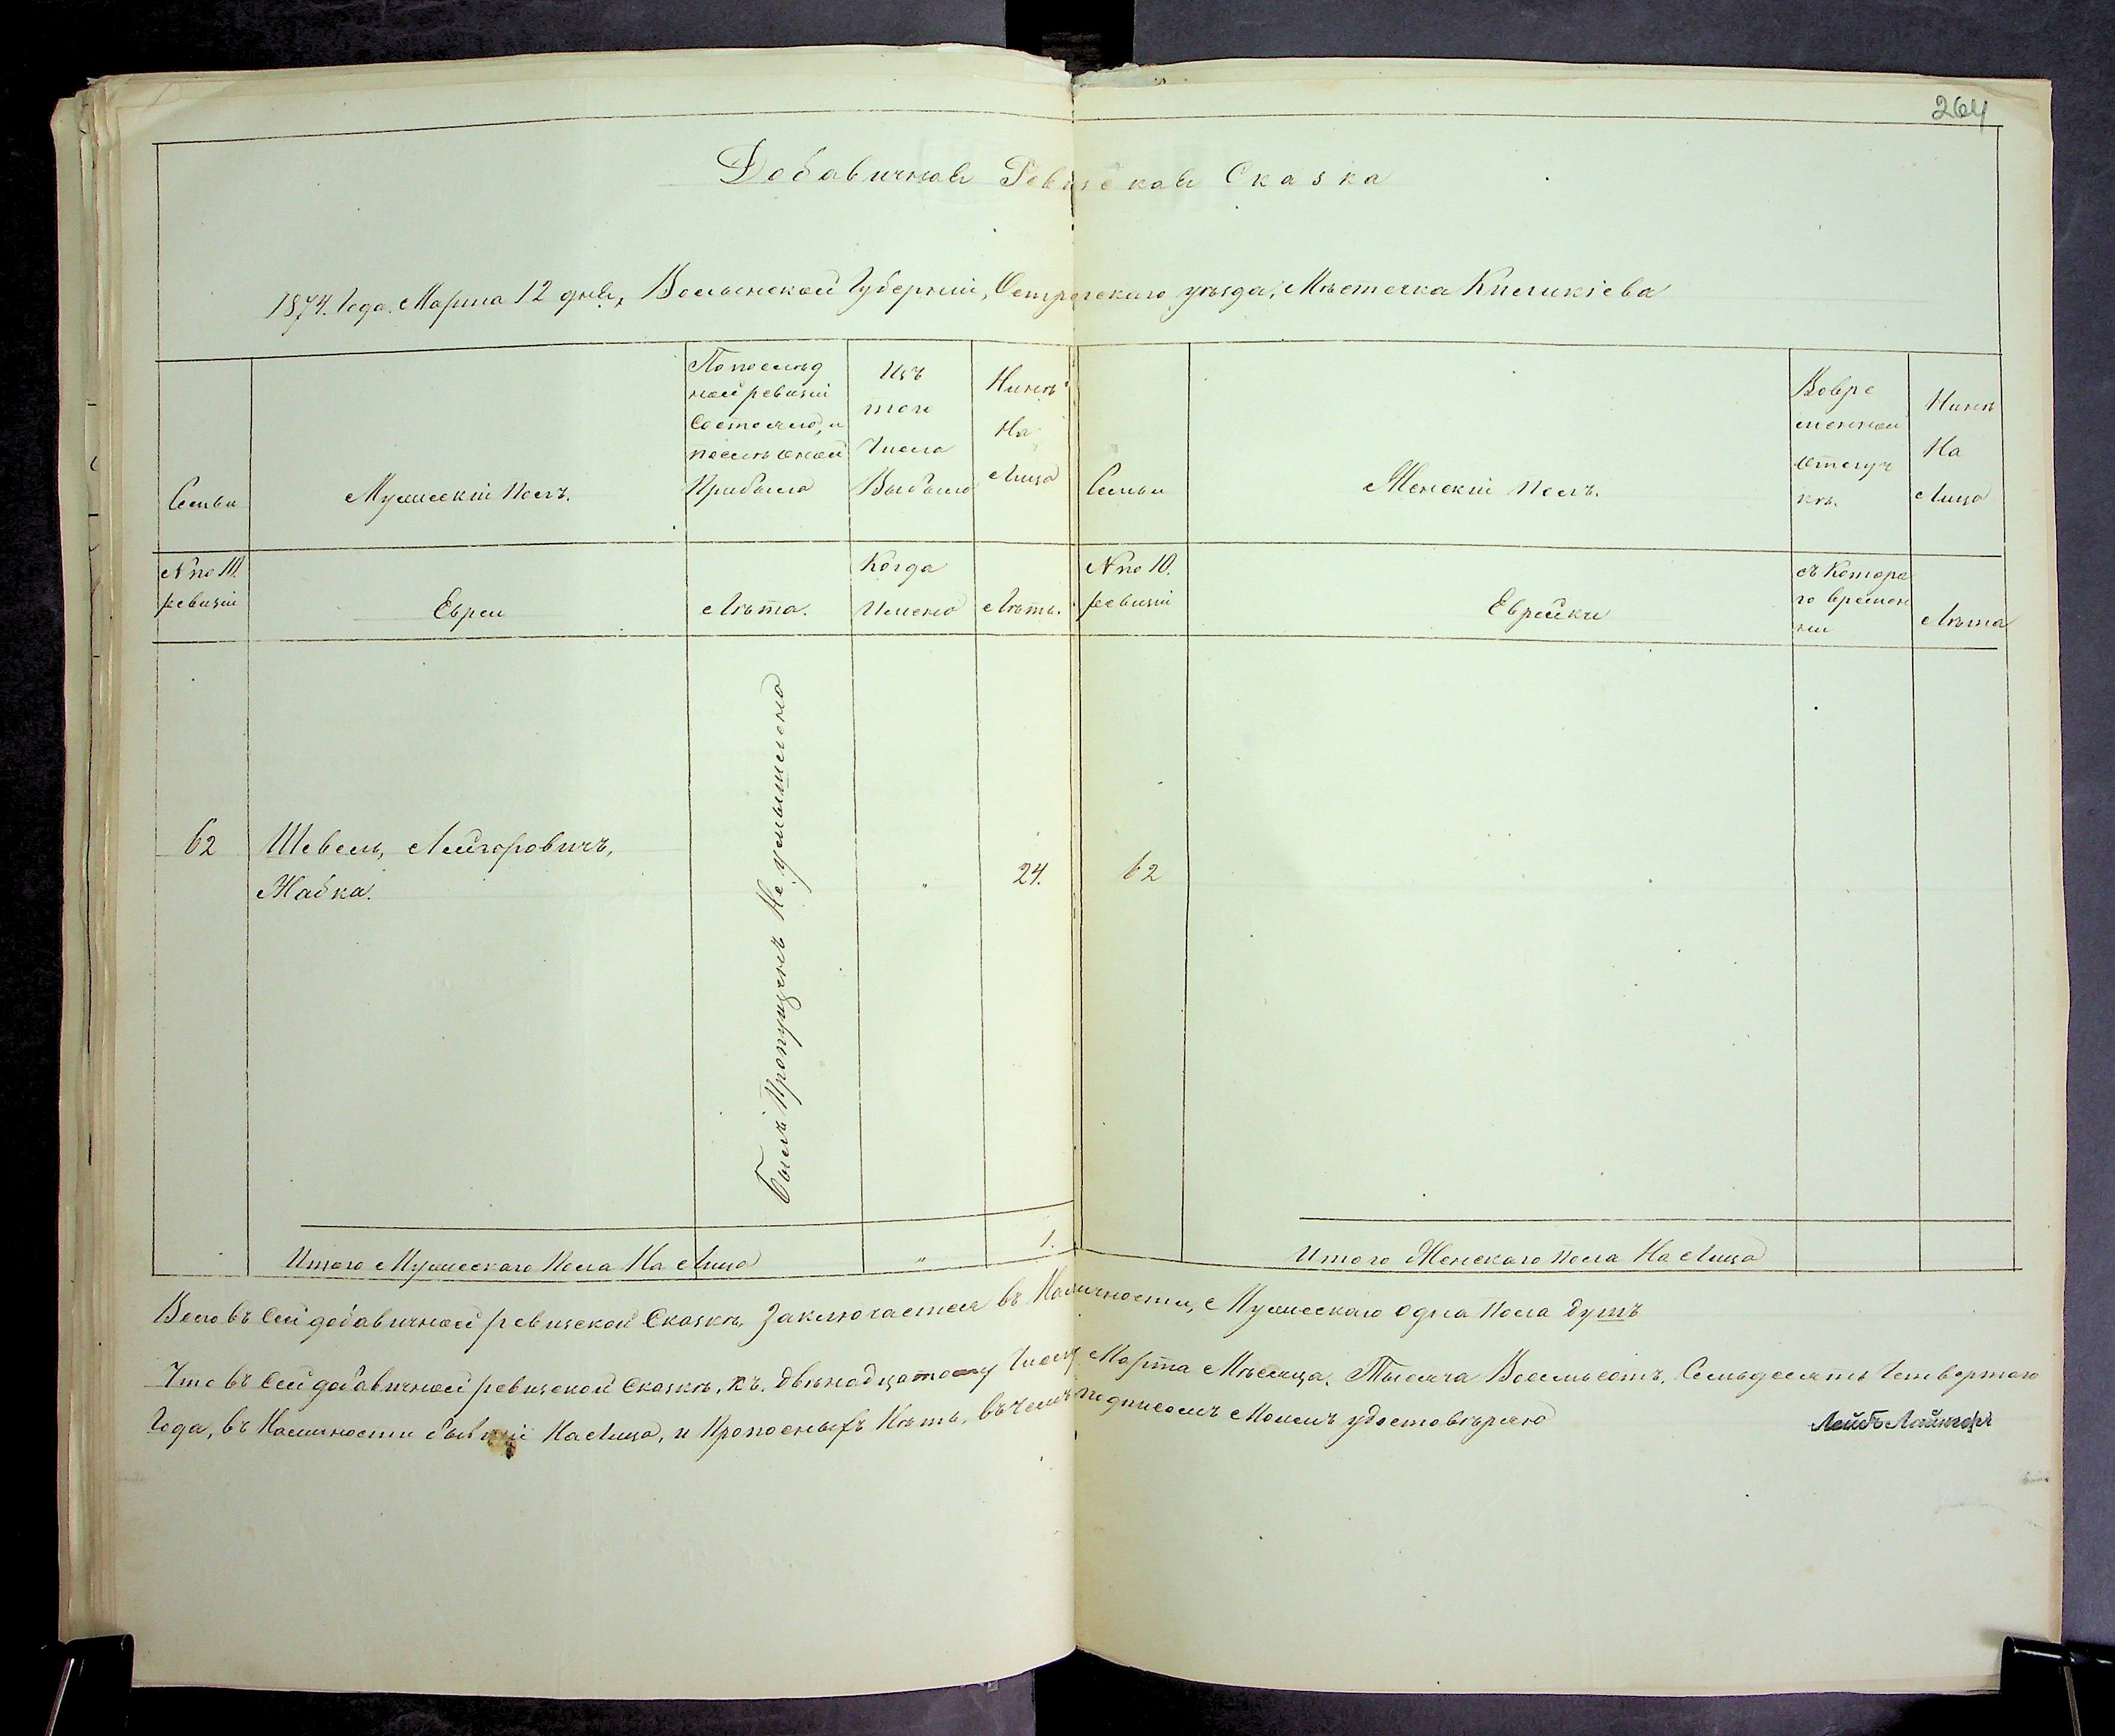 264
Добавичная Ревизская Сказка
1874. Года. Марта 12 дня, Волынской Губерніи, Острогского уѣзда, Мѣстечка
Семьи
Мужескій Полъ.
Попослѣд
ней ревизіи
Состояло, и
послѣ оной
Прибыло
Изъ
того
Числа
Выбыло
Нинѣ
На
Лицо
Семьи
Женскій Полъ.
Вовре
менной
отлуч
кѣ.
Нинѣ
На
Лицо
№ по 10.
ревизіи
Евреи
Лѣта.
Когда
Именно
Лѣтъ.
№ по 10.
ревизіи
Еврейки
съ Которо
го времен
ни
Лѣта
62
Шевель, Лейзоровичъ,
Жабка.
Былъ Пропущенъ Не умышлено
"
24.
62
Итого Мужескаго Пола На Лицо
"
1.
Итого Женскаго Пола На Лицо
Всего въ Сей добавичной ревизской Сказкѣ, Заключается въ Наличности, Мужескаго одна Пола душъ
Что въ Сей добавичной ревизской Сказкѣ, къ. двѣнадцатому Числу Марта Мѣсяца. Тысяча Восемьсотъ, Семьдесятъ Четвертого
Года, въ Наличности На Лицо, и Нѣтъ, въ чемъ подписомъ Моимъ удостовѣряю
Лейбъ